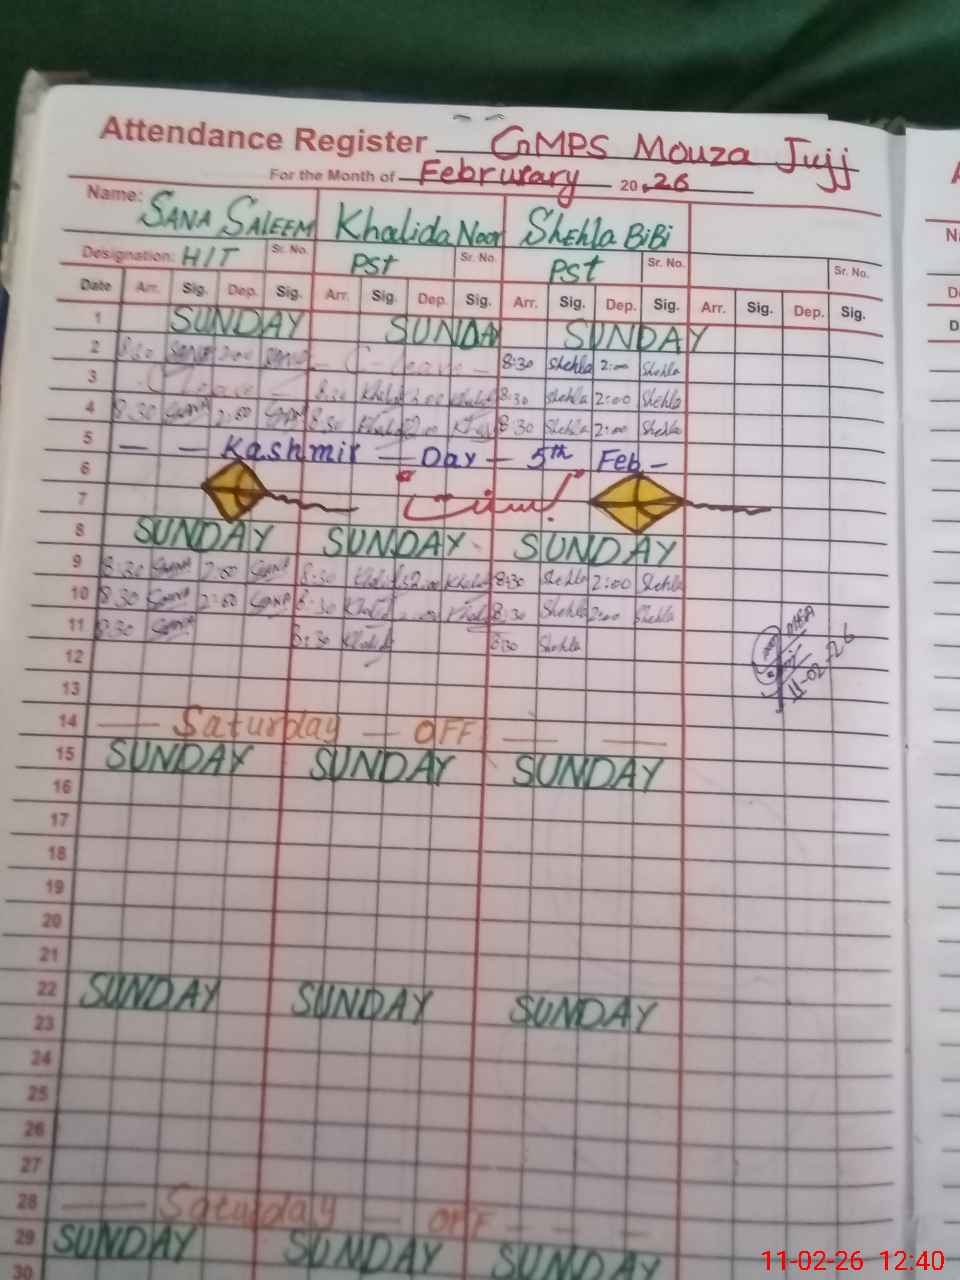 Attendance Register GMPS Mouza Jujj
For the Month of Februrary 20 26
Name: SANA SALEEM Khalida Noor Shehla BiBi
Designation: H/T Sr. No. PST Sr. No. PST Sr. No. Sr. No.
Date Arr. Sig. Dep. Sig. Arr. Sig. Dep. Sig. Arr. Sig. Dep. Sig. Arr. Sig. Dep. Sig.
1 SUNDAY SUNDAY SUNDAY
2 8:30 SANA 2:00 SANA - C-leave - 8:30 Shehla 2:00 Shehla
3 C leave 8:30 Khalida 2:00 Khalida 8:30 Shehla 2:00 Shehla
4 8:30 SANA 2:00 SANA 8:30 Khalida 2:00 8:30 Shehla 2:00 Shehla
5 - - Kashmir - Day - 5th Feb -
6
7 "بسنت"
8 SUNDAY SUNDAY SUNDAY
9 8:30 SANA 2:00 SANA 8:30 Khalida 2:00 Khalida 8:30 Shehla 2:00 Shehla
10 8:30 SANA 2:00 SANA 8:30 Khalida 2:00 Khalida 8:30 Shehla 2:00 Shehla
11 8:30 SANA 8:30 Khalida 8:30 Shehla
12
13
11-02-26
14 - Saturday - OFF - -
15 SUNDAY SUNDAY SUNDAY
16
17
18
19
20
21
22 SUNDAY SUNDAY SUNDAY
23
24
25
26
27
28 - Saturday - OFF - -
29 SUNDAY SUNDAY SUNDAY
30
11-02-26 12:40